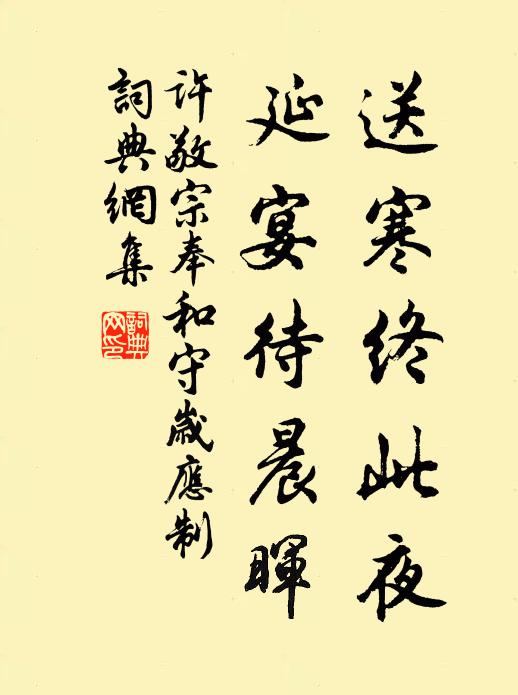 送寒終此夜
延宴待晨暉
許敬宗奉和守歲應制
詞典網集
詞典网印